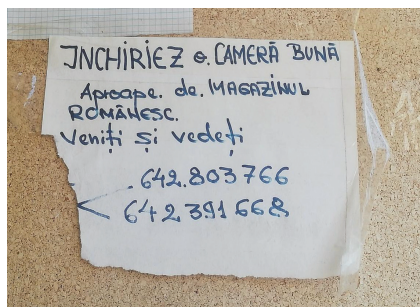 INCHIRIEZ o. CAMERĂ BUNĂ
Aproape. de. MAGAZINUL
ROMÂNESC.
Veniți și vedeți
642.803766
642391668